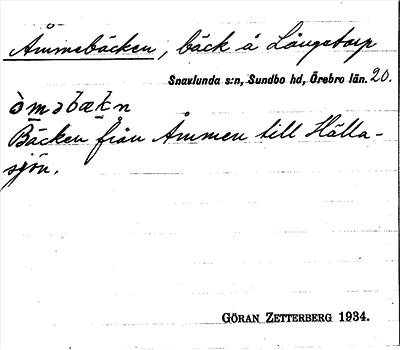 Åmmebäcken, bäck å Långetorp
Snavlunda s:n, Sundbo hd, Örebro län. 20.
òmǝbækn
Bäcken från Åmmen till Hälla-
sjön.
GÖRAN ZETTERBERG 1934.